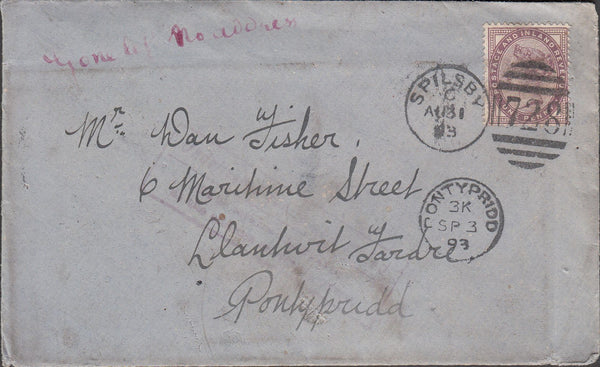 Gone left No address
POSTAGE AND INLAND REVENUE
ONE PENNY
728
SPILSBY
C
AU 31
93
Mr Dan Fisher.
6 Maritime Street
Llantwit Fardre.
Pontypridd.
PONTYPRIDD
3K
SP 3
93